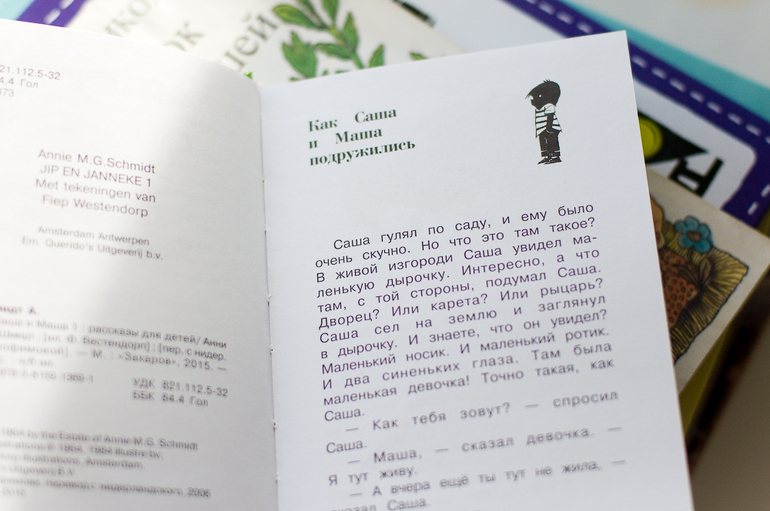 21.112.5-32
4.4 Гол
73
Annie M.G.Schmidt
JIP EN JANNEKE 1
Met tekeningen van
Fiep Westendorp
Amsterdam Antwerpen
Em. Querido's Uitgeverij b.v.
идт А.
Саше и Маше 1 : рассказы для детей/ Анни
[ил. Ф. Вестендорп] ; [пер. с нидер.
М. : «Захаров», 2015. —
УДК 821.112.5-32
ББК 84.4 Гол
1964 by the Estate of Annie M.G. Schmidt
Illustrations, Amsterdam.
Uitgeverij b.v.
перевод с нидерландского, 2006
2015
шей
ок
Как Саша
и Маша
подружились
Саша гулял по саду, и ему было
очень скучно. Но что это там такое?
В живой изгороди Саша увидел ма-
ленькую дырочку. Интересно, а что
там, с той стороны, подумал Саша.
Дворец? Или карета? Или рыцарь?
Саша сел на землю и заглянул
в дырочку. И знаете, что он увидел?
Маленький носик. И маленький ротик.
И два синеньких глаза. Там была
маленькая девочка! Точно такая, как
Саша.
— Как тебя зовут? — спросил
Саша.
— Маша, — сказал девочка. —
Я тут живу.
— А вчера ещё ты тут не жила, —
сказал Саша.